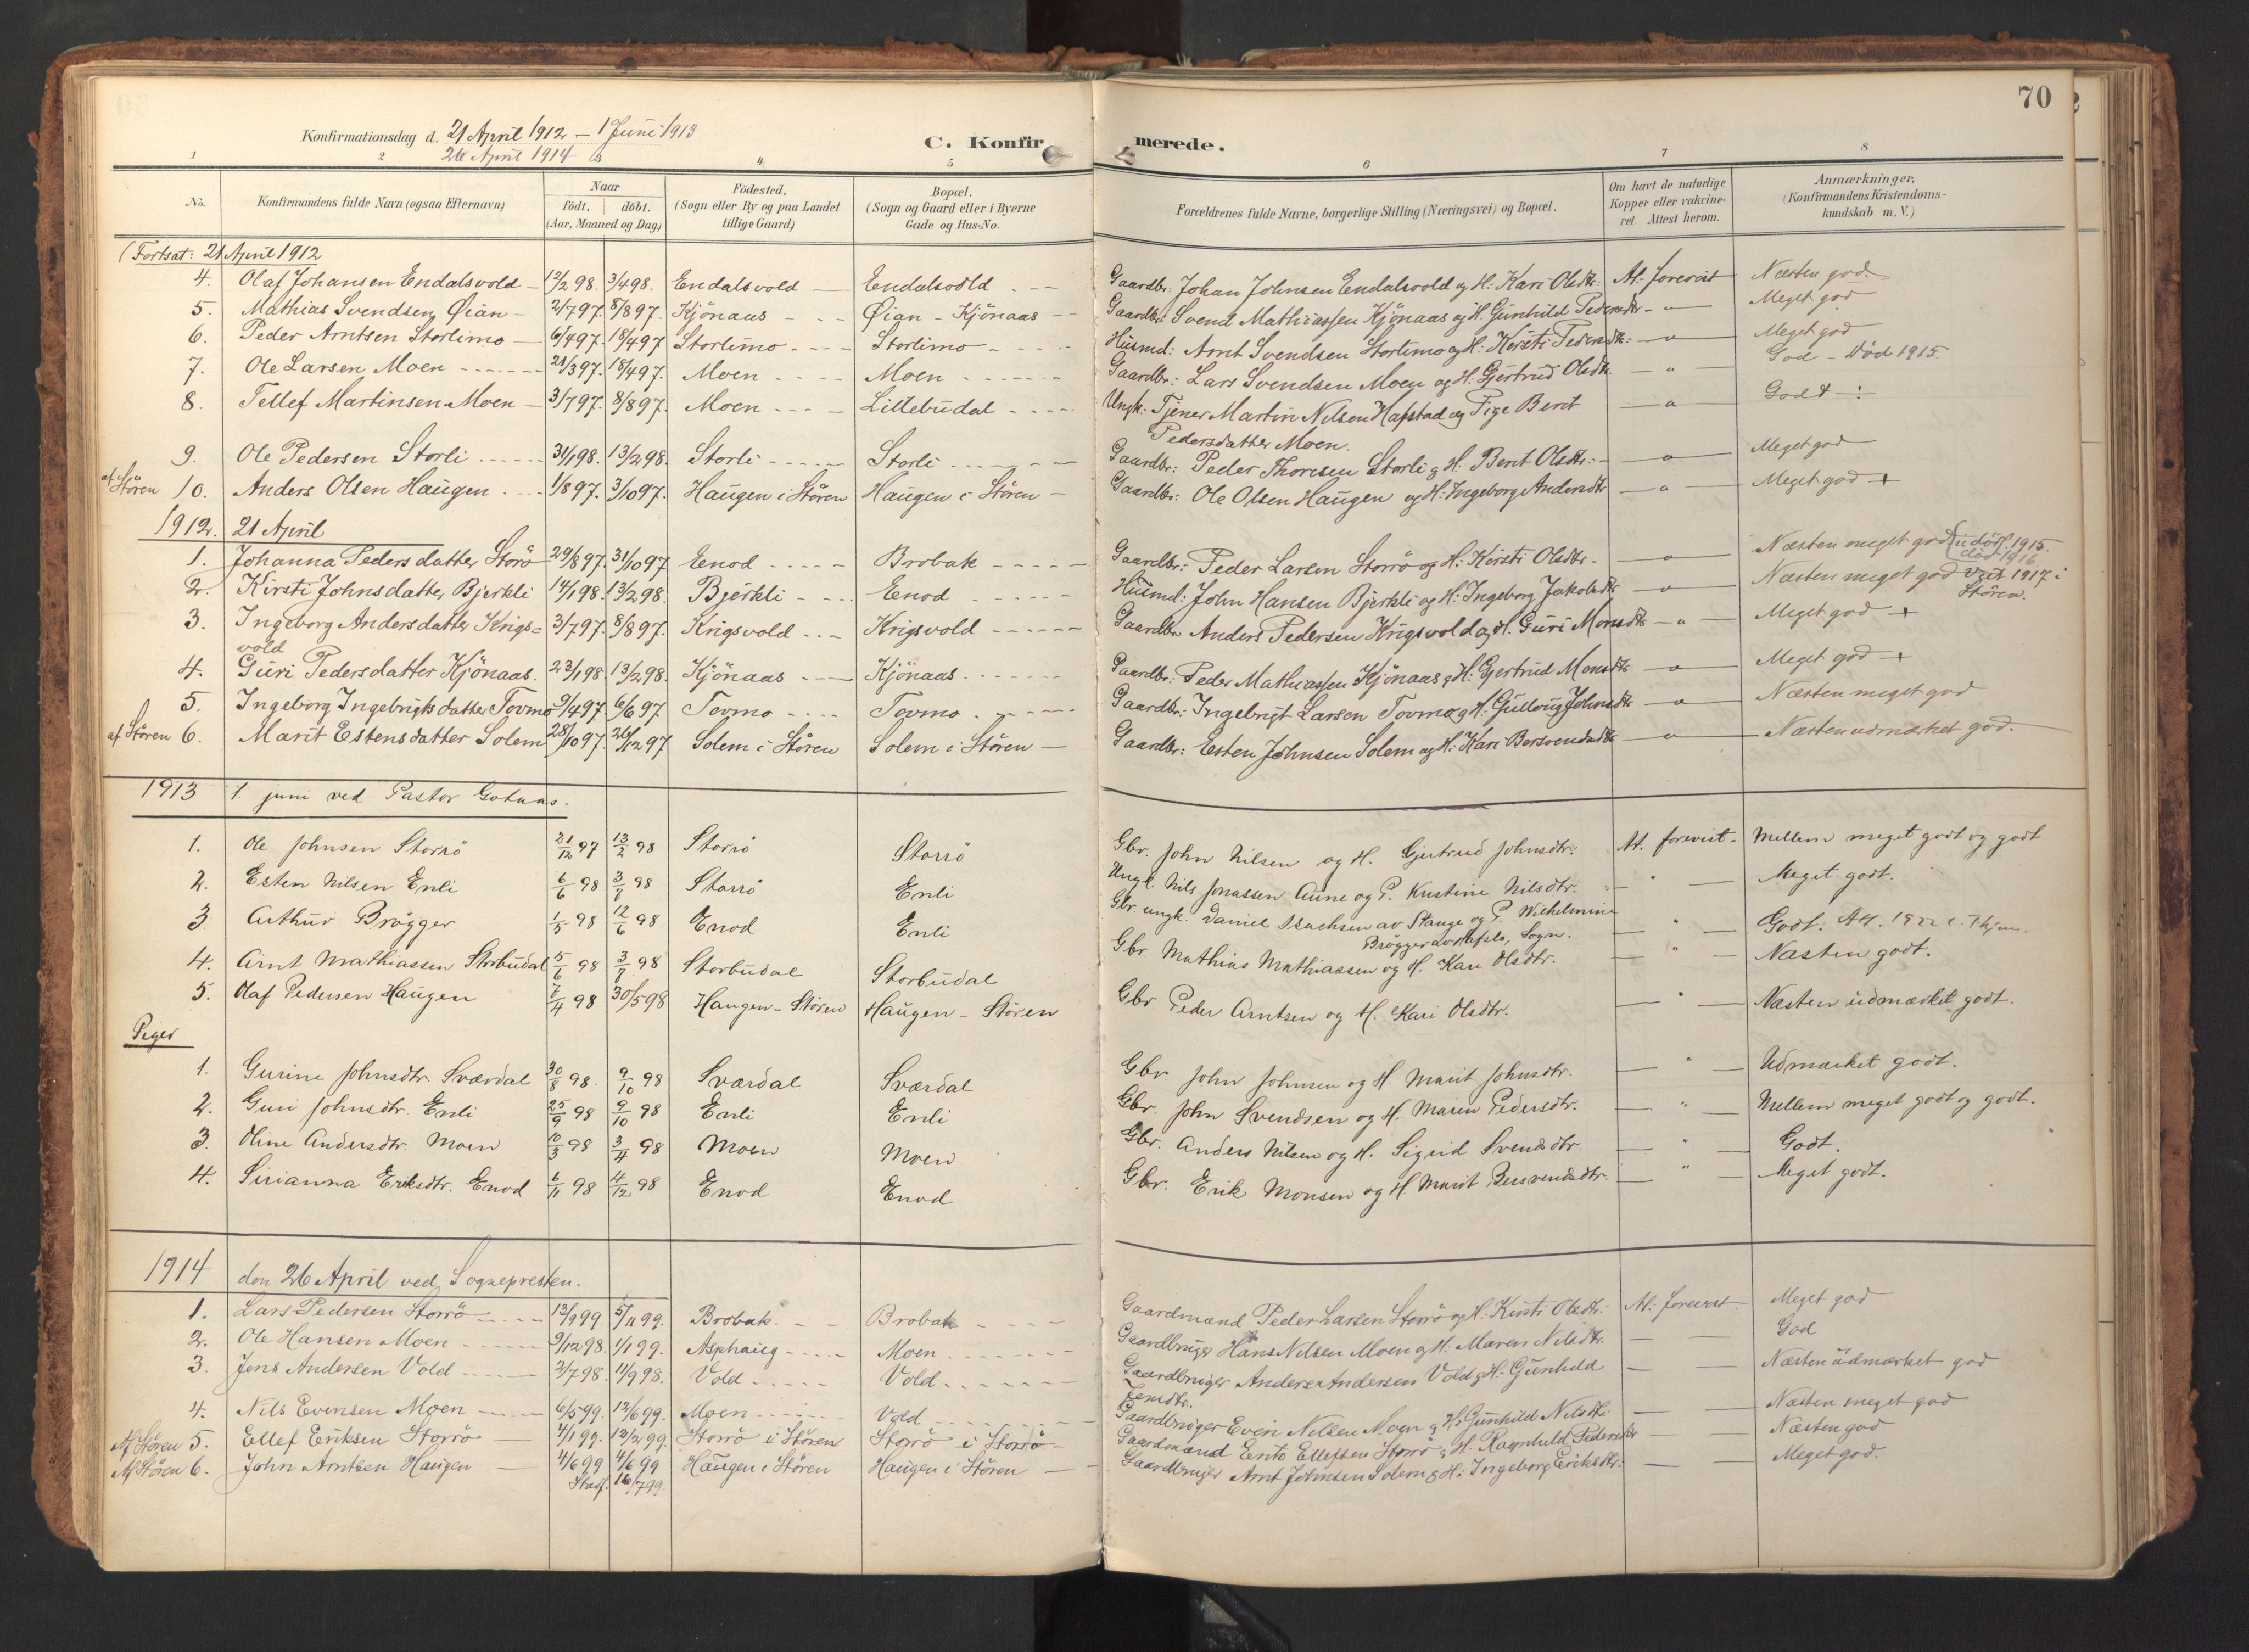 70
Konfirmationsdag d. 21 April 1912 – 1 Juni 1913
26 April 1914
C. Konfirmerede.
1 2 3 4 5 6 7 8
No. Konfirmandens fulde Navn (ogsaa Efternavn) Naar födt. döbt. (Aar, Maaned og Dag) Födested. (Sogn eller By og paa Landet tillige Gaard) Bopæl. (Sogn og Gaard eller i Byerne Gade og Hus-No. Forældrenes fulde Navne, borgerlige Stilling (Næringsvei) og Bopæl. Om havt de naturlige Kopper eller vaccineret. Attest herom. Anmærkninger. (Konfirmandens Kristendomskundskab m. V.)
(Fortsat: 21 April 1912
4. Olaf Johansen Endalsvold 12/2 98. 3/4 98. Endalsvold Endalsvold Gaardbr. Johan Johnsen Endalsvold og H: Kari Olsdtr: At. forevist Næsten god
5. Mathias Svendsen Øian 2/7 97. 8/8 97. Kjönaas Øian - Kjönaas Gaardbr: Svend Mathiassen Kjönaas og H. Gunhild Pedersdtr - " Meget god
6. Peder Arntsen Storlimo 6/4 97. 18/4 97 Storlimo Storlimo Husmd: Arnt Svendsen Storlimo og H: Kirsti Pedersdtr: " Meget god
7. Ole Larsen Moen 21/3 97. 18/4 97. Moen Moen Gaardbr: Lars Svendsen Moen og H: Gjertrud Olsdtr. " God - Död 1915.
8. Tellef Martinsen Moen 3/7 97. 8/8 97. Moen Lillebudal Ungk: Tjener Martin Nilsen Hafstad og Pige Berit " Godt
Pedersdatter Moen.
9. Ole Pedersen Storli 31/1 98. 13/2 98. Storli Storli Gaardbr: Peder Thoresen Storli g H: Berit Olsdtr: " Meget god
af Stören 10. Anders Olsen Haugen 1/8 97. 3/10 97. Haugen i Stören Haugen i Stören Gaardbr: Ole Olsen Haugen og H: Ingeborg Andersdtr " Meget god +
1912. 21 April
1. Johanna Pedersdatter Storö 29/8 97. 31/10 97 Enod Brobak Gaardbr: Peder Larsen Storrö og H: Kirsti Olsdtr. " Næsten meget god (udöbt 1915.
död 1916
2. Kirsti Johnsdatter Bjerkli 14/1 98. 13/2 98. Bjerkli Enod Husmd: John Hansen Bjerkli og H: Ingeborg Jakobsdtr " Næsten meget god 1917 i
Stören.
3. Ingeborg Andersdatter Krigs= 3/7 97. 8/8 97. Krigsvold Krigsvold Gaardbr Anders Pedersen Krigsvold og H. Guri Monsdtr " Meget god +
vold
4. Guri Pedersdatter Kjönaas. 23/1 98. 13/2 98. Kjönaas Kjönaas. Gaardbr: Peder Mathiassen Kjönaas g H: Gjertrud Monsdtr " Meget god +
5. Ingeborg Ingebrigtsdatter Tovmo 9/4 97. 6/6 97 Tovmo Tovmo. Gaardbr: Ingebrigt Larsen Tovmo g H: Gullaug Johnsdtr " Næsten meget god
af Stören 6. Marit Estensdatter Solem 28/10 97. 26/12 97 Solem i Stören Solem i Stören Gaardbr: Esten Johnsen Solem og H: Kari Bersvendsdtr " Næsten udmærket god.
1913 1. juni ved Pastor Gotaas.
1. Ole Johnsen Storrö 21/12 97 13/2 98 Storrö Storrö Gbr. John Nilsen og H. Gjertrud Johnsdtr. At. forevist. Mellem meget godt og godt
2. Esten Nilsen Enli 6/6 98 3/7 98 Storrö Enli Ungk. Nils Jonassen Aune og P. Kristine Nilsdtr. " Meget godt.
3. Arthur Brögger 1/5 98 12/6 98 Enod Enli Gbr. ungk. Daniel Isachsen av Stange og P. Wilhelmine " Godt. Att. 1922
Brögger av Hafslo, Sogn.
4. Arnt Mathiassen Storbudal 5/6 98 3/7 98 Storbudal Storbudal Gbr. Mathias Mathiassen og H. Kari Olsdtr. " Næsten godt.
5. Olaf Pedersen Haugen 7/4 98 30/5 98 Haugen - Stören Haugen - Stören Gbr Peder Arntsen og H. Kari Olsdtr. " Næsten udmærket godt.
Piger
1. Gurine Johnsdtr. Sværdal 30/8 98. 9/10 98 Sværdal Sværdal Gbr. John Johnsen og H Marit Johnsdtr. " Udmærket godt.
2. Guri Johnsdtr. Enli 25/9 98 9/10 98 Enli Enli Gbr. John Svendsen og H. Maren Pedersdtr. " Mellem meget godt og godt.
3. Oline Andersdtr. Moen 10/3 98 3/4 98 Moen Moen Gbr. Anders Nilsen og H. Sigrid Svendsdtr. " Godt.
4. Sirianna Eriksdtr. Enod 6/11 98 4/12 98 Enod Enod Gbr. Erik Monsen og H. Marit Bersvendsdtr. " Meget godt.
1914 den 26 April ved Sognepresten.
1. Lars Pedersen Storrö 13/9 99 5/11 99. Brobak. Brobak Gaardmand Peder Larsen Storrö og H: Kirsti Olsdtr. At. forevist. Meget god
2. Ole Hansen Moen 9/12 98. 1/1 99. Asphaug Moen Gaardbruger Hans Nilsen Moen og H. Maren Nilsdtr. God
3. Jens Andersen Vold 2/7 98. 11/9 98. Vold Vold Gaardbruger Anders Andersen Vold g H: Gunhild Næsten udmærket god
Jensdtr.
4. Nils Evensen Moen 6/5 99. 12/6 99. Moen Vold Gaardbruger Even Nilsen Moen g H: Gunhild Nilsdtr. Næsten meget god
Af Stören 5. Ellef Eriksen Storrö 4/1 99. 12/2 99. Storrö i Stören Storrö i Storrö Gaardmand Erik Ellefsen Storrö g H. Ragnhild Pedersdtr Næsten god
Af Stören 6. John Arntsen Haugen 4/6 99 4/6 99 Haugen i Stören Haugen i Stören Gaardbruger Arnt Johnsen Solem g H: Ingeborg Eriksdtr: Meget god.
Stadf. 16/7 99.